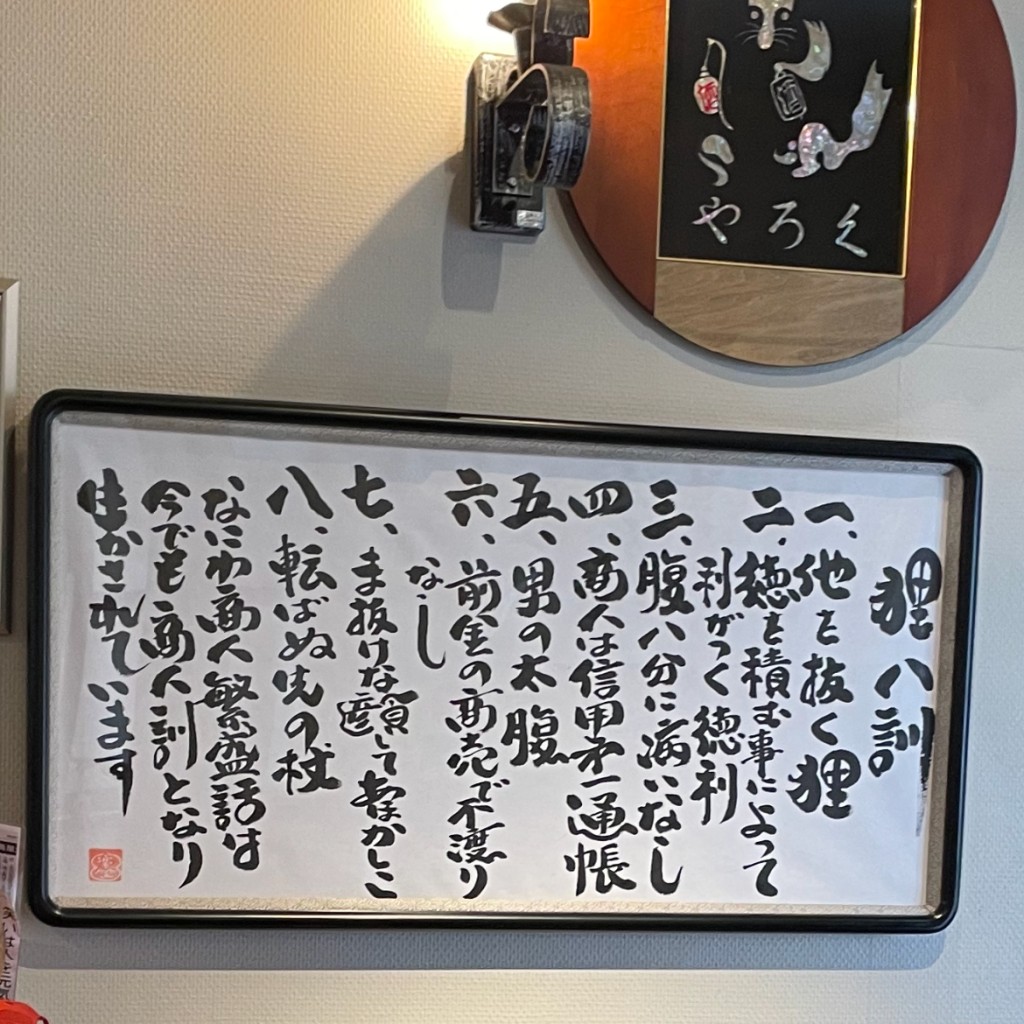 酒
酒
くろや
狸八訓
一、他を抜く狸
二、徳を積む事によって
利がつく 徳利
三、腹八分に病いなし
四、商人は信用第一通帳
五、男の太腹
六、前金の商売で不渡り
なし
七、ま抜けな顔してあほかしこ
八、転ばぬ先の杖
なにわ商人繁盛話は
今でも商人訓となり
生かされています